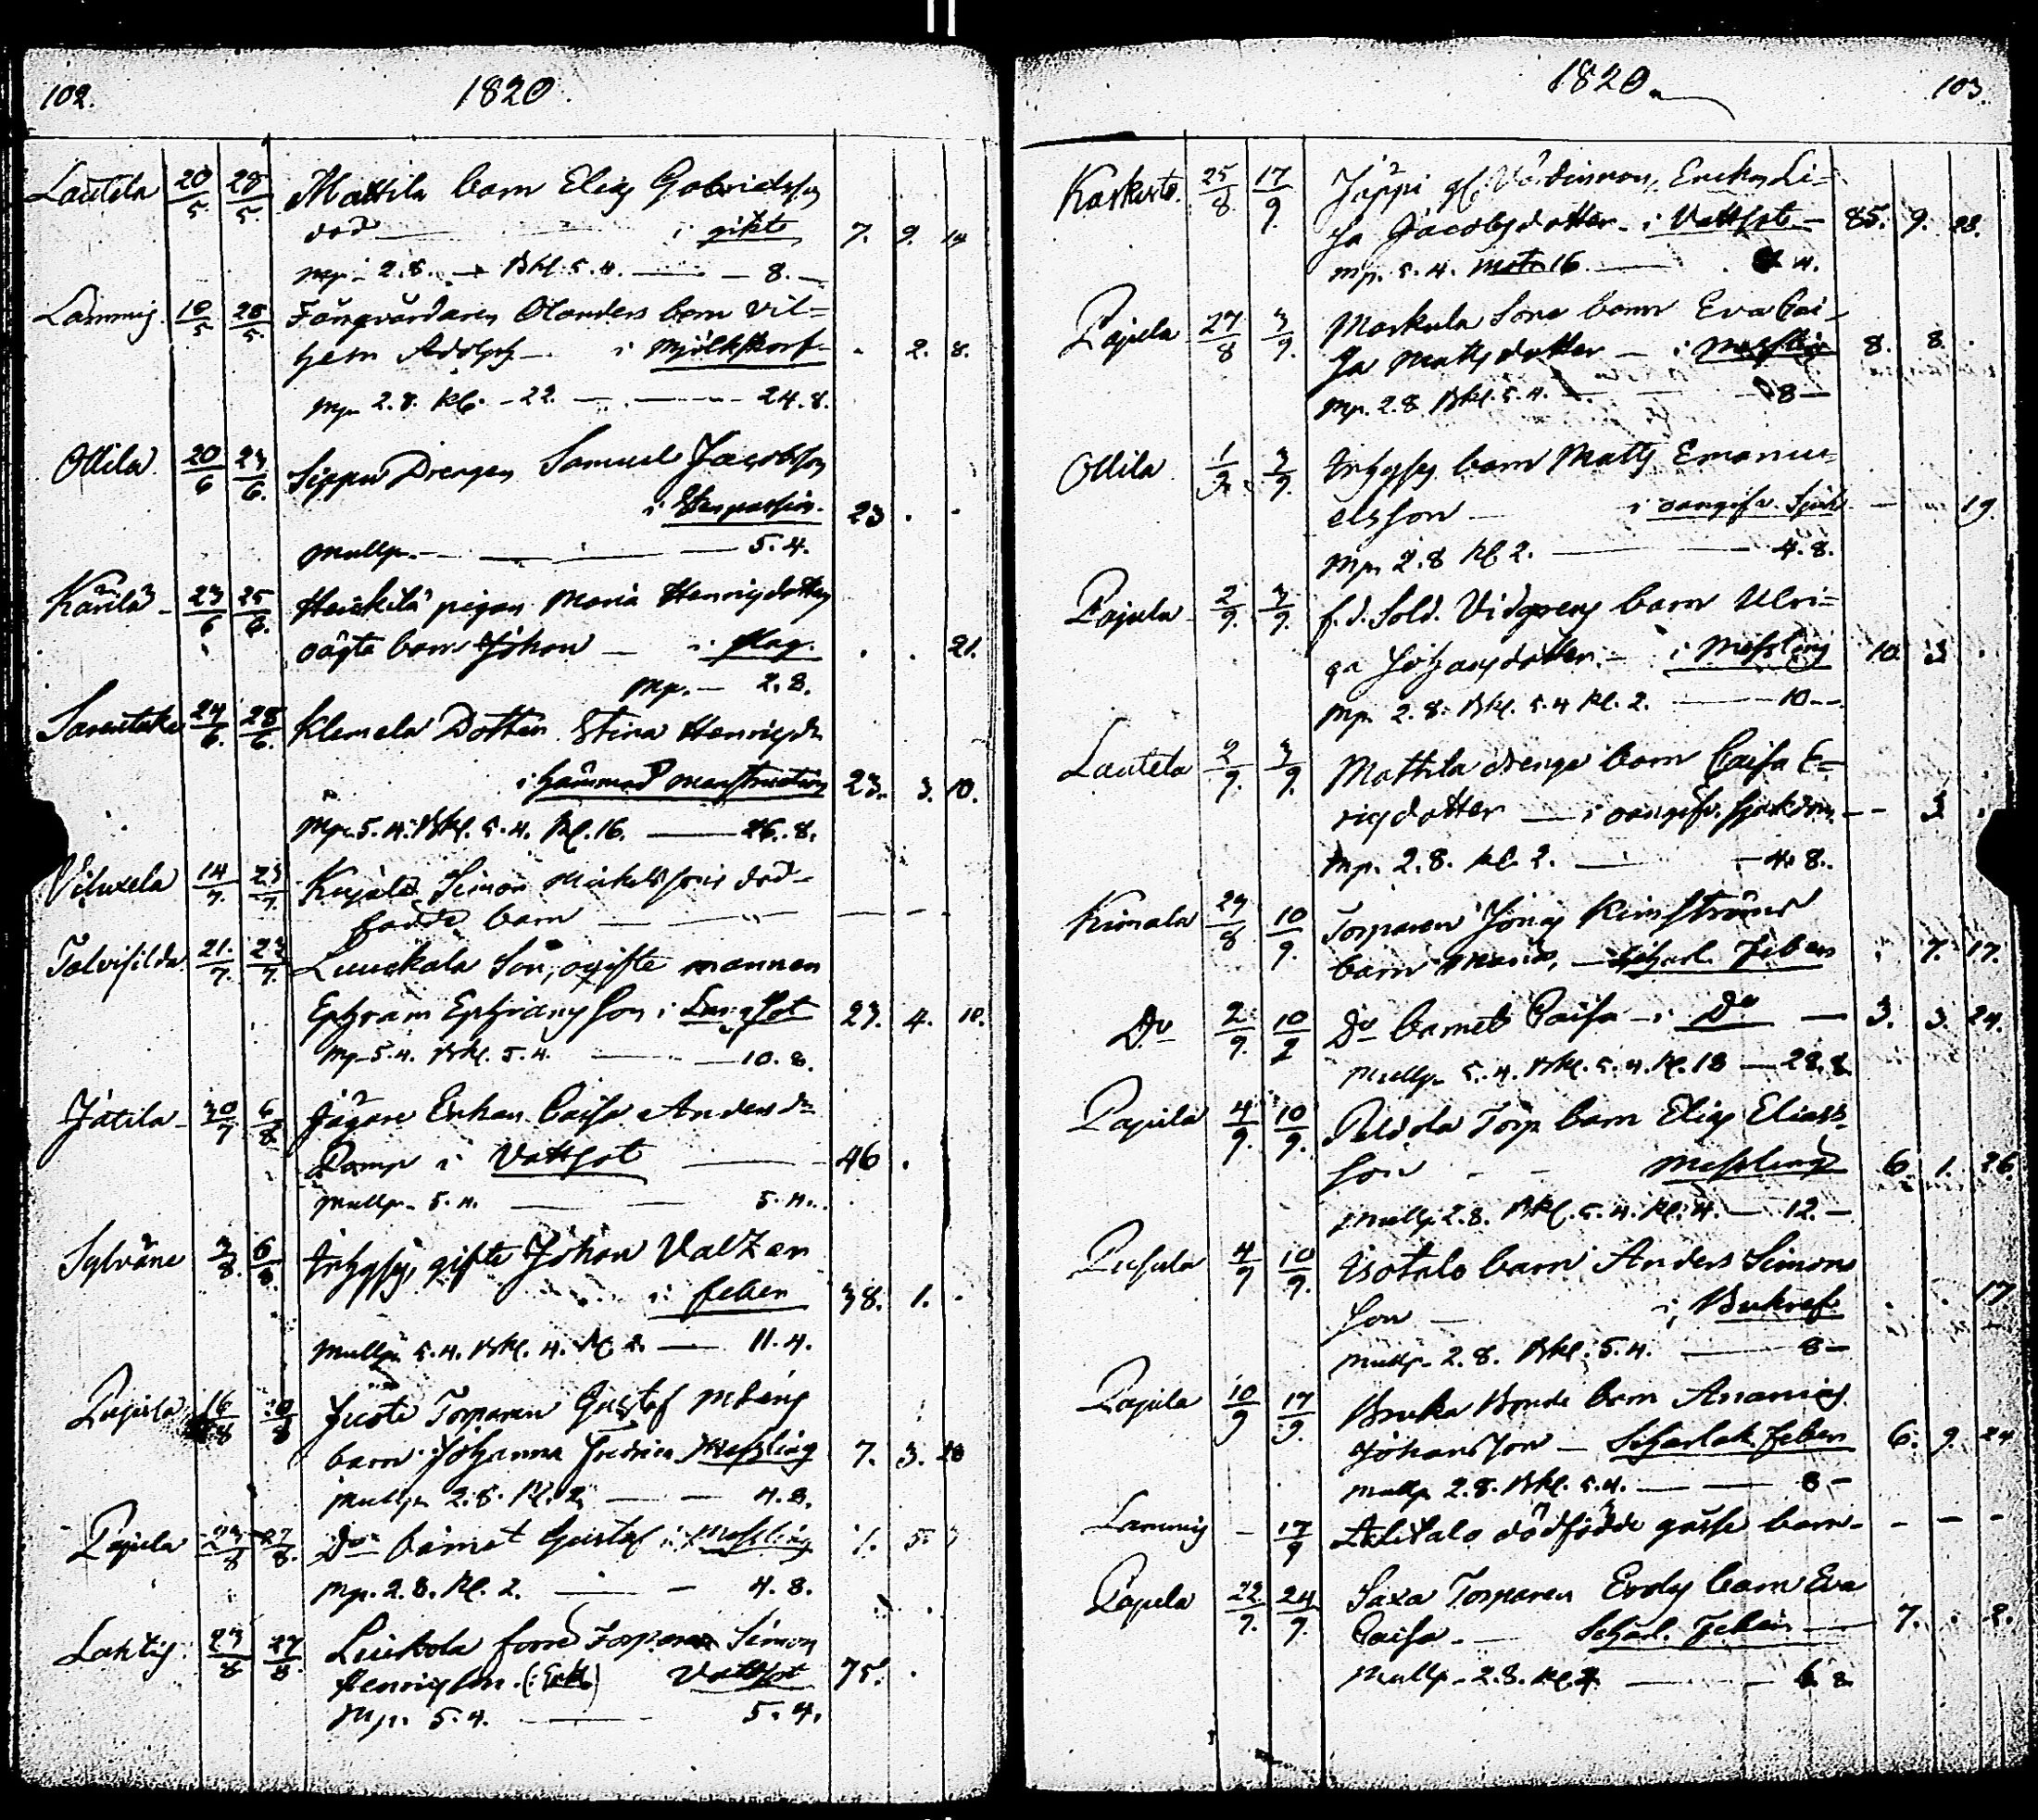 102. 1820.
Lautila 20/5 28/5. Mattila barn Elias Gabrielsson
död i gikt 7. 9. 14
Mp. 2.8. Bkl. 5.4. 8.
Lammis 18/5 28/5. Fångvårdaren Olanders barn Vil=
helm Adolph i Mjölkskorf . 2. 8.
Mp. 2.8. Kl. 22. 24.8.
Ollila 20/6 23/6. Sippu Drengen Samuel Jacobsson
i 23 . .
Mullp. 5.4.
Karilä 23/6 25/6. Heickilä pigan Maria Henrigsdotters
oägta barn Johan i slag. . . 21.
Mp. 2.8.
24/6. 28/6. Klemela Dotter Stina Henrigsdr
i hämmad Menstruation 23. 3. 10.
Mp. 5.4. Bkl. 5.4. Kl. 16. 26.8.
14/7. 23/7. Kujala Simon Mickelssons död=
födde barn
Talvisilda 21/7. 23/7. Luuckala Son, ogifte mannen
Ephraim Ephraimsson i Lungsot 23. 4. 10.
Mp. 5.4. Bkl. 5.4. 10.8.
Jätila 30/7 6/8 Jägare Enkan Caisa Andersdr
Pamp i Vattsot 46 .
Mullp. 5.4. 5.4.
Sylväne 3/8. 6/8. Inhyses, gifte Johan Valzen
i feber 38. 1. .
Mullp. 5.4. Bkl. 4. Kl. 2. 11.4.
Papula 16/8 20/8 Juoti Torparen Gustaf
barn Johanna Fredrica Messling 7. 3. 28
Mullp. 2.8. Kl. 2. 4.8.
Papula 23/8 27/8. Do barnet Gustaf i Messling 1. 5.
Mp. 2.8. Kl. 2. 4.8.
Lahtis 23/8 27/8. Luckola förre Torparen Simon
Henrigsson (: Enkl.) Vattsot 75. .
Mp. 5.4. 5.4.
1820. 103.
Karkusto. 25/8 17/9. Jäppi gl. Värdinnan, Enckan Li=
sa Jacobsdotter i Vattsot 85. 9. 28.
Mp. 5.4. 16. 4.
Papula 27/8 3/9. Markula Sone barn Eva Cai=
sa Matsdotter i Messling 8. 8. .
Mp. 2.8 Bkl. 5.4. 8
Ollila 1/9. 3/9. Inhyses barn Mats Emanu=
elsson i oangifv. Sjuk 19.
Mp. 2.8 Kl. 2. 4.8.
Papula 2/9. 3/9. f.d. Sold. Vidgrens barn Ulri=
ca Johansdotter i Messling 10. 3 .
Mp. 2.8. Bkl. 5.4 Kl. 2. 10
Lautila 2/9. 3/9. Mattila drengs barn Caisa E=
rigsdotter i oangifv. sjukdom 3 .
Mp. 2.8. Kl. 2. 4.8.
Kimala 29/8 10/9. Torparen Jonas Rimströms
barn Maria, Scharl. Feber . 7. 17.
Do 2/9. 10/9 Do barnet Caisa i Do 3. 3. 24.
Mullp. 5.4. Bkl. 5.4. Kl. 18 28.8
Papula 4/9. 10/9. Peldola Torp. barn Elias Elias=
son Messling 6. 1. 26
Mullp. 2.8. Bkl. 5.4. Kl. 4. 12.
4/9 10/9. Isotalo barn Anders Simons
son i Bukref . . 17
Mullp. 2.8. Bkl. 5.4. 8
Papula 10/9 17/9. Bruka Bonde barn Ananias
Johansson Scharlak. feber 6. 9. 24
Mullp 2.8. Bkl. 5.4. 8
Lammis 17/9 Alitalo dödfödde gosse barn
Papula 22/9. 24/9. Saxa Torparen Erdes barn Eva
Caisa Scharl. Feber 7. . 2.
Mullp. 2.8. Kl. 4. 6.8